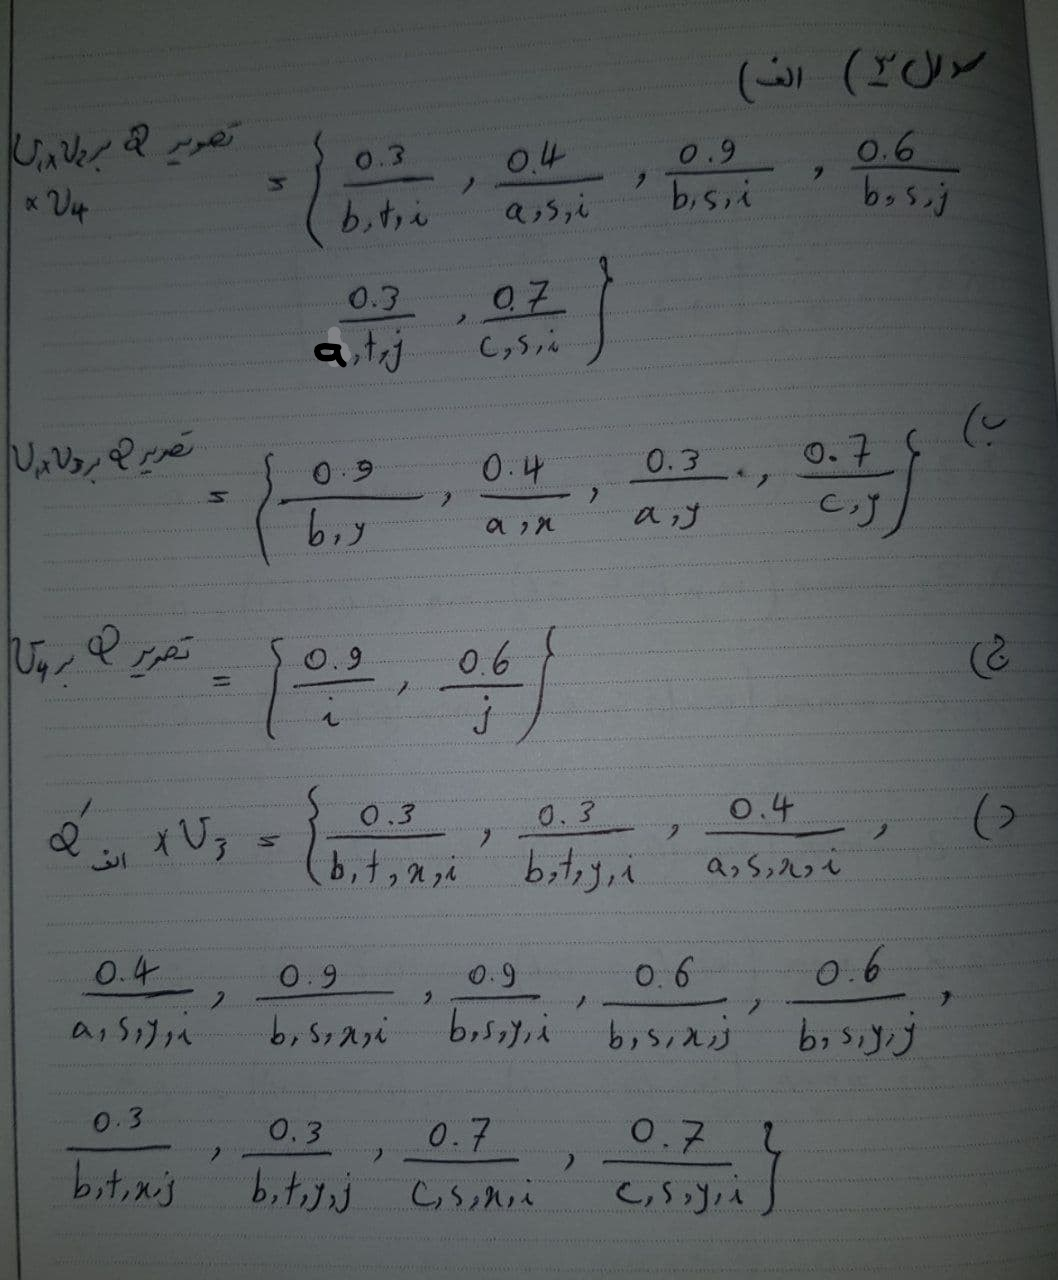 سوال ۳) الف)
تصویر Q بر U₁×U₂ × U₄ = { 0.3/b,t,i , 0.4/a,s,i , 0.9/b,s,i , 0.6/b,s,j
0.3/a,t,j , 0.7/c,s,i }
ب) تصویر Q بر U₁×U₃ = { 0.9/b,y , 0.4/a,x , 0.3/a,y , 0.7/c,y }
ج) تصویر Q بر U₄ = { 0.9/i , 0.6/j }
د) Q′الف × U₃ = { 0.3/b,t,x,i , 0.3/b,t,y,i , 0.4/a,s,x,i ,
0.4/a,s,y,i , 0.9/b,s,x,i , 0.9/b,s,y,i , 0.6/b,s,x,j , 0.6/b,s,y,j ,
0.3/b,t,x,j , 0.3/b,t,y,j , 0.7/c,s,x,i , 0.7/c,s,y,i }